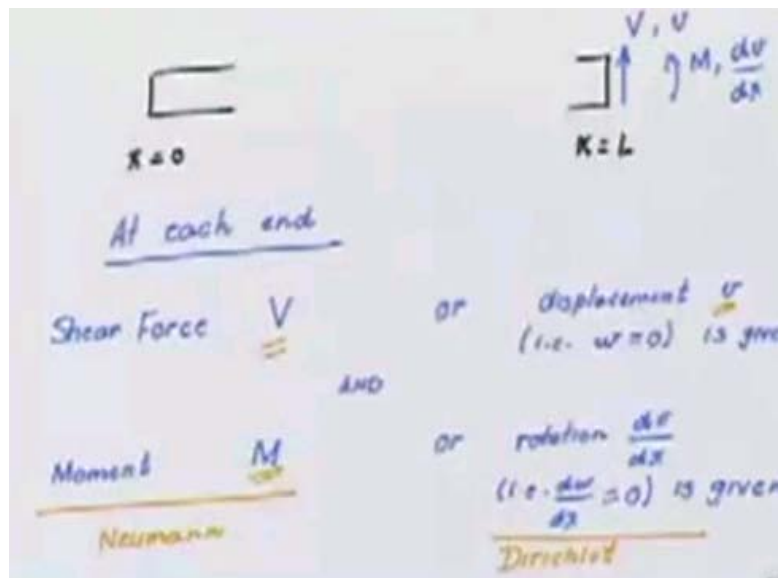 V, v
M, dv/dx
x = 0
x = L
At each end
Shear Force V or displacement v
(i.e. w = 0) is give
AND
Moment M or rotation dv/dx
(i.e. dw/dx = 0) is given
Neumann
Dirichlet